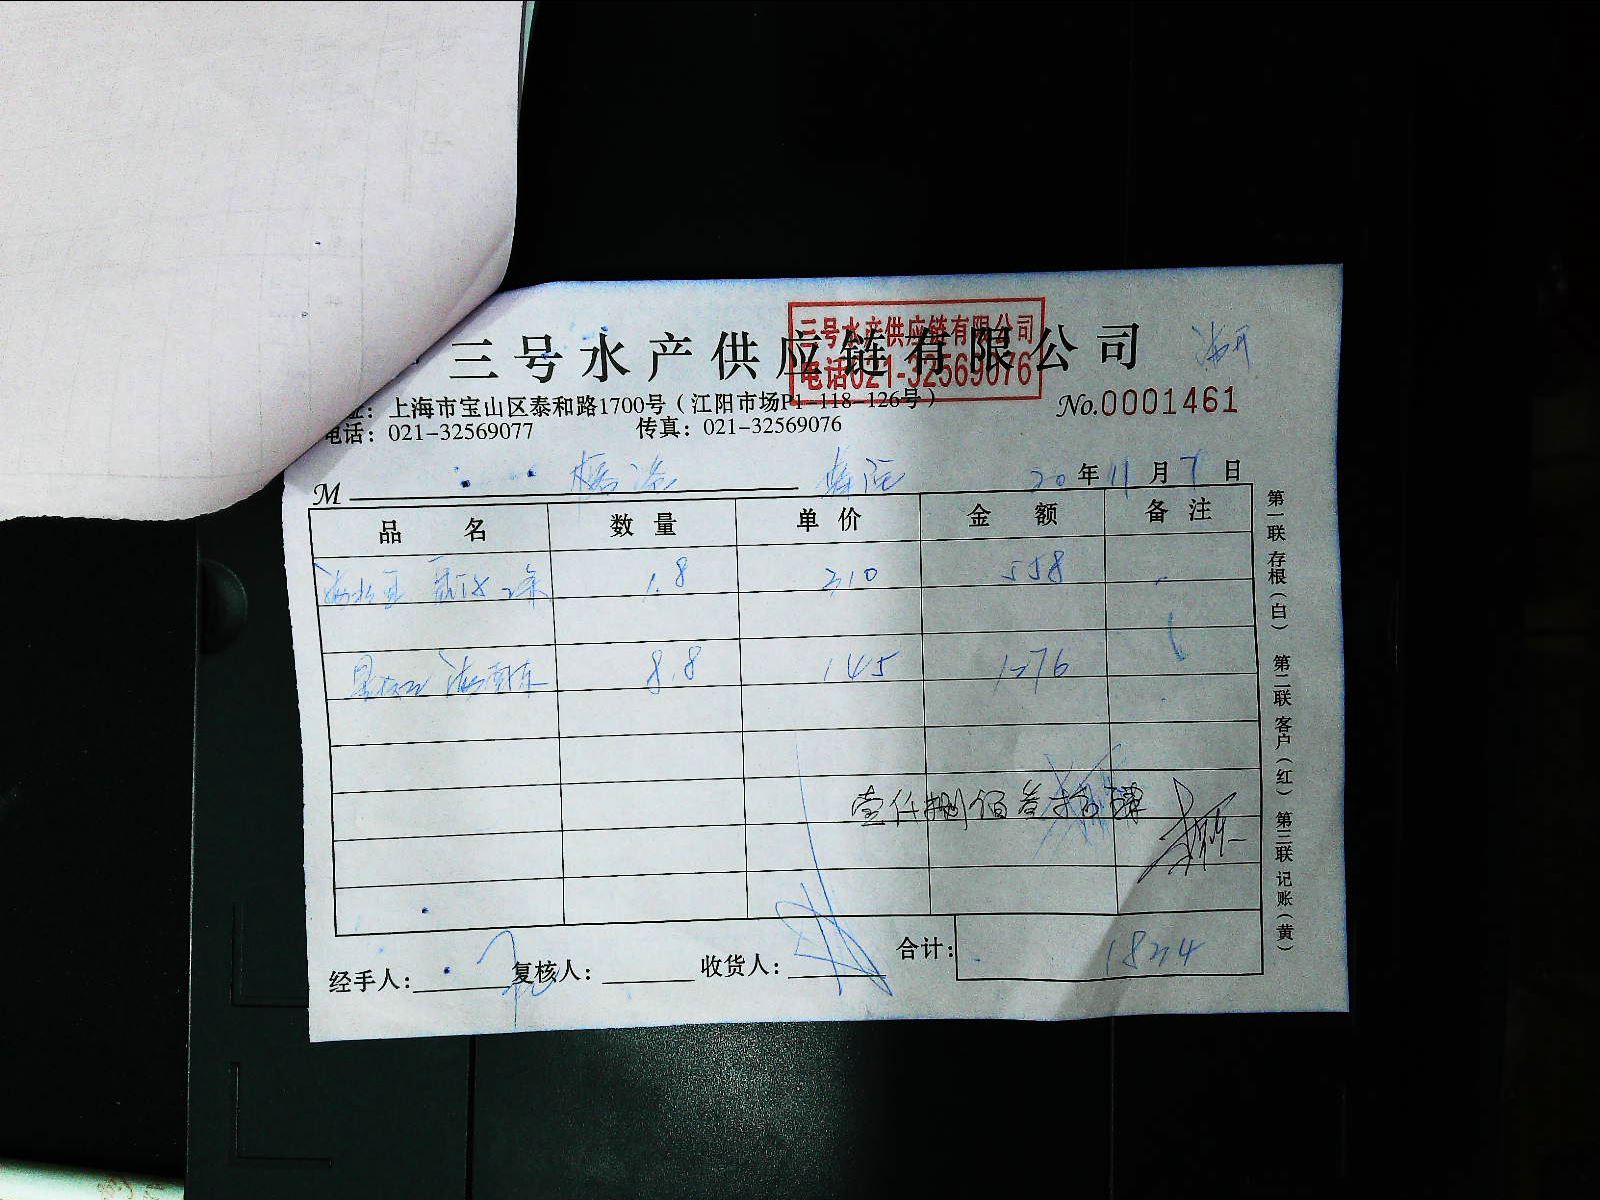 三号水产供应链有限公司
三号水产供应链有限公司
电话021-32569076
址：上海市宝山区泰和路1700号（江阳市场P1-118-126号）
No.0001461
电话：021-32569077 传真：021-32569076
M 20年11月7日
品名 数量 单价 金额 备注
1.8 310 558
8.8 145 1276
壹仟捌佰叁拾肆
经手人： 复核人： 收货人： 合计： 1834
第一联 存根（白） 第二联 客户（红） 第三联 记账（黄）